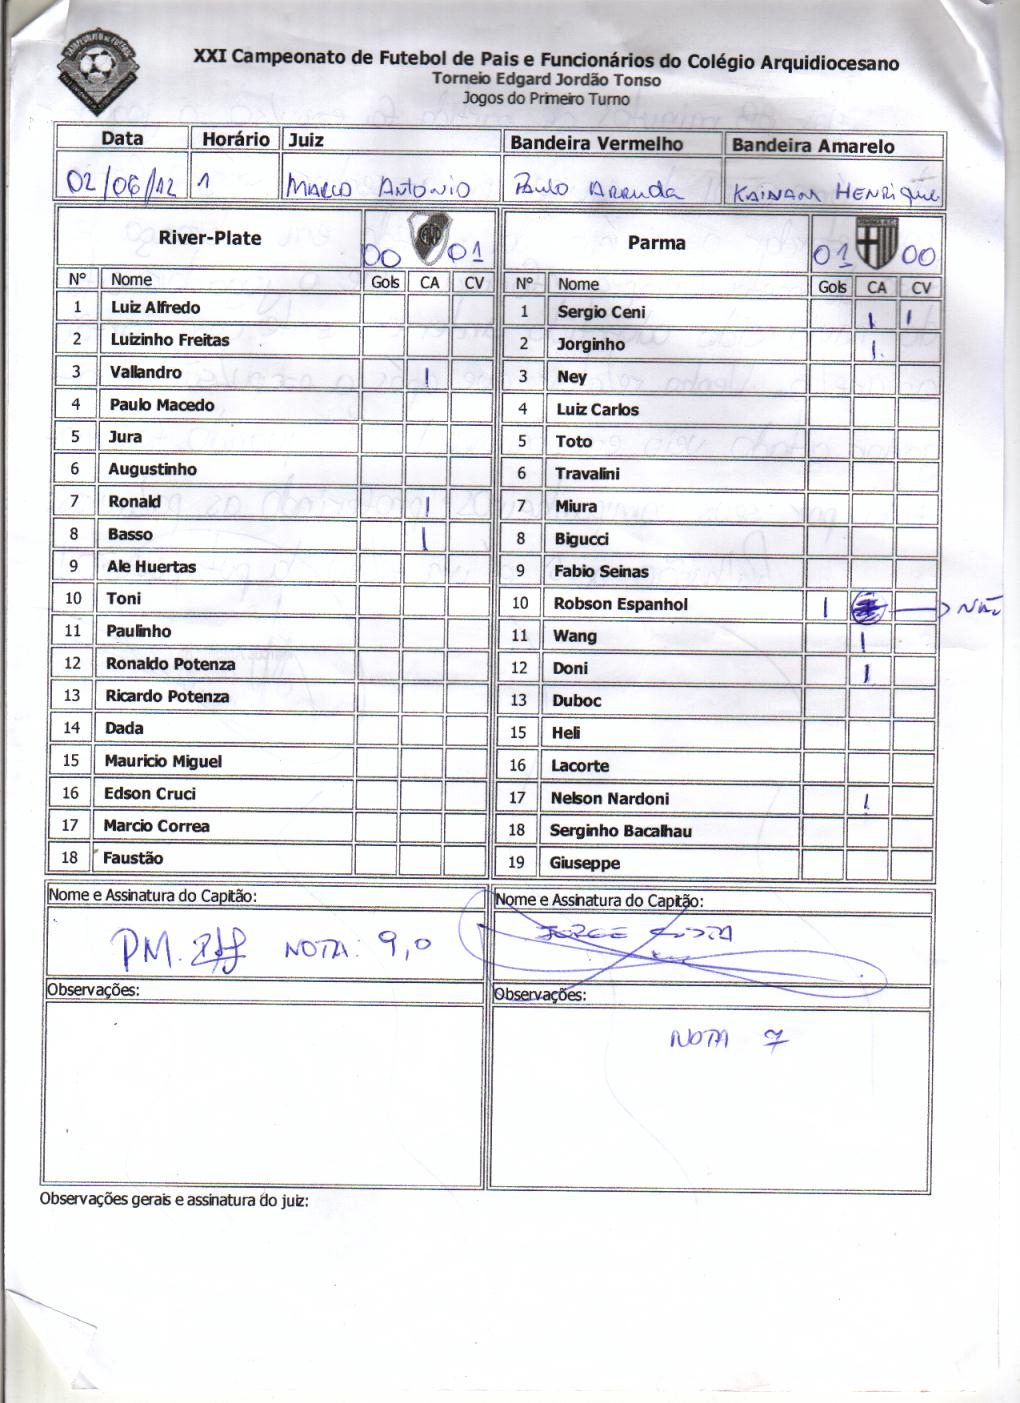 XXI Campeonato de Futebol de Pais e Funcionários do Colégio Arquidiocesano
Torneio Edgard Jordão Tonso
Jogos do Primeiro Turno
Data Horário Juiz Bandeira Vermelho Bandeira Amarelo
02/06/12 1 Marco Antonio Paulo Arruda Kainam Henrique
River-Plate 00 01 Parma 01 00
Nº Nome Gols CA CV Nº Nome Gols CA CV
1 Luiz Alfredo 1 Sergio Ceni 1 1
2 Luizinho Freitas 2 Jorginho 1
3 Vallandro 1 3 Ney
4 Paulo Macedo 4 Luiz Carlos
5 Jura 5 Toto
6 Augustinho 6 Travalini
7 Ronald 1 7 Miura
8 Basso 1 8 Bigucci
9 Ale Huertas 9 Fabio Seinas
10 Toni 10 Robson Espanhol 1 → NÃO
11 Paulinho 11 Wang 1
12 Ronaldo Potenza 12 Doni 1
13 Ricardo Potenza 13 Duboc
14 Dada 15 Heli
15 Mauricio Miguel 16 Lacorte
16 Edson Cruci 17 Nelson Nardoni 1
17 Marcio Correa 18 Serginho Bacalhau
18 Faustão 19 Giuseppe
Nome e Assinatura do Capitão: Nome e Assinatura do Capitão:
PM. NOTA: 9,0 JORGE
Observações: Observações:
NOTA 7
Observações gerais e assinatura do juiz: